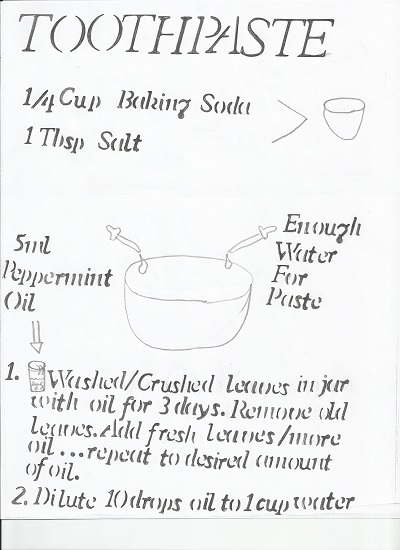 TOOTHPASTE
1/4 Cup Baking Soda
1 Tbsp Salt
5ml
Peppermint
Oil
Enough
Water
For
Paste
1. Washed/Crushed leaves in jar
with oil for 3 days. Remove old
leaves. Add fresh leaves/more
oil...repeat to desired amount
of oil.
2. Dilute 10 drops oil to 1 cup water